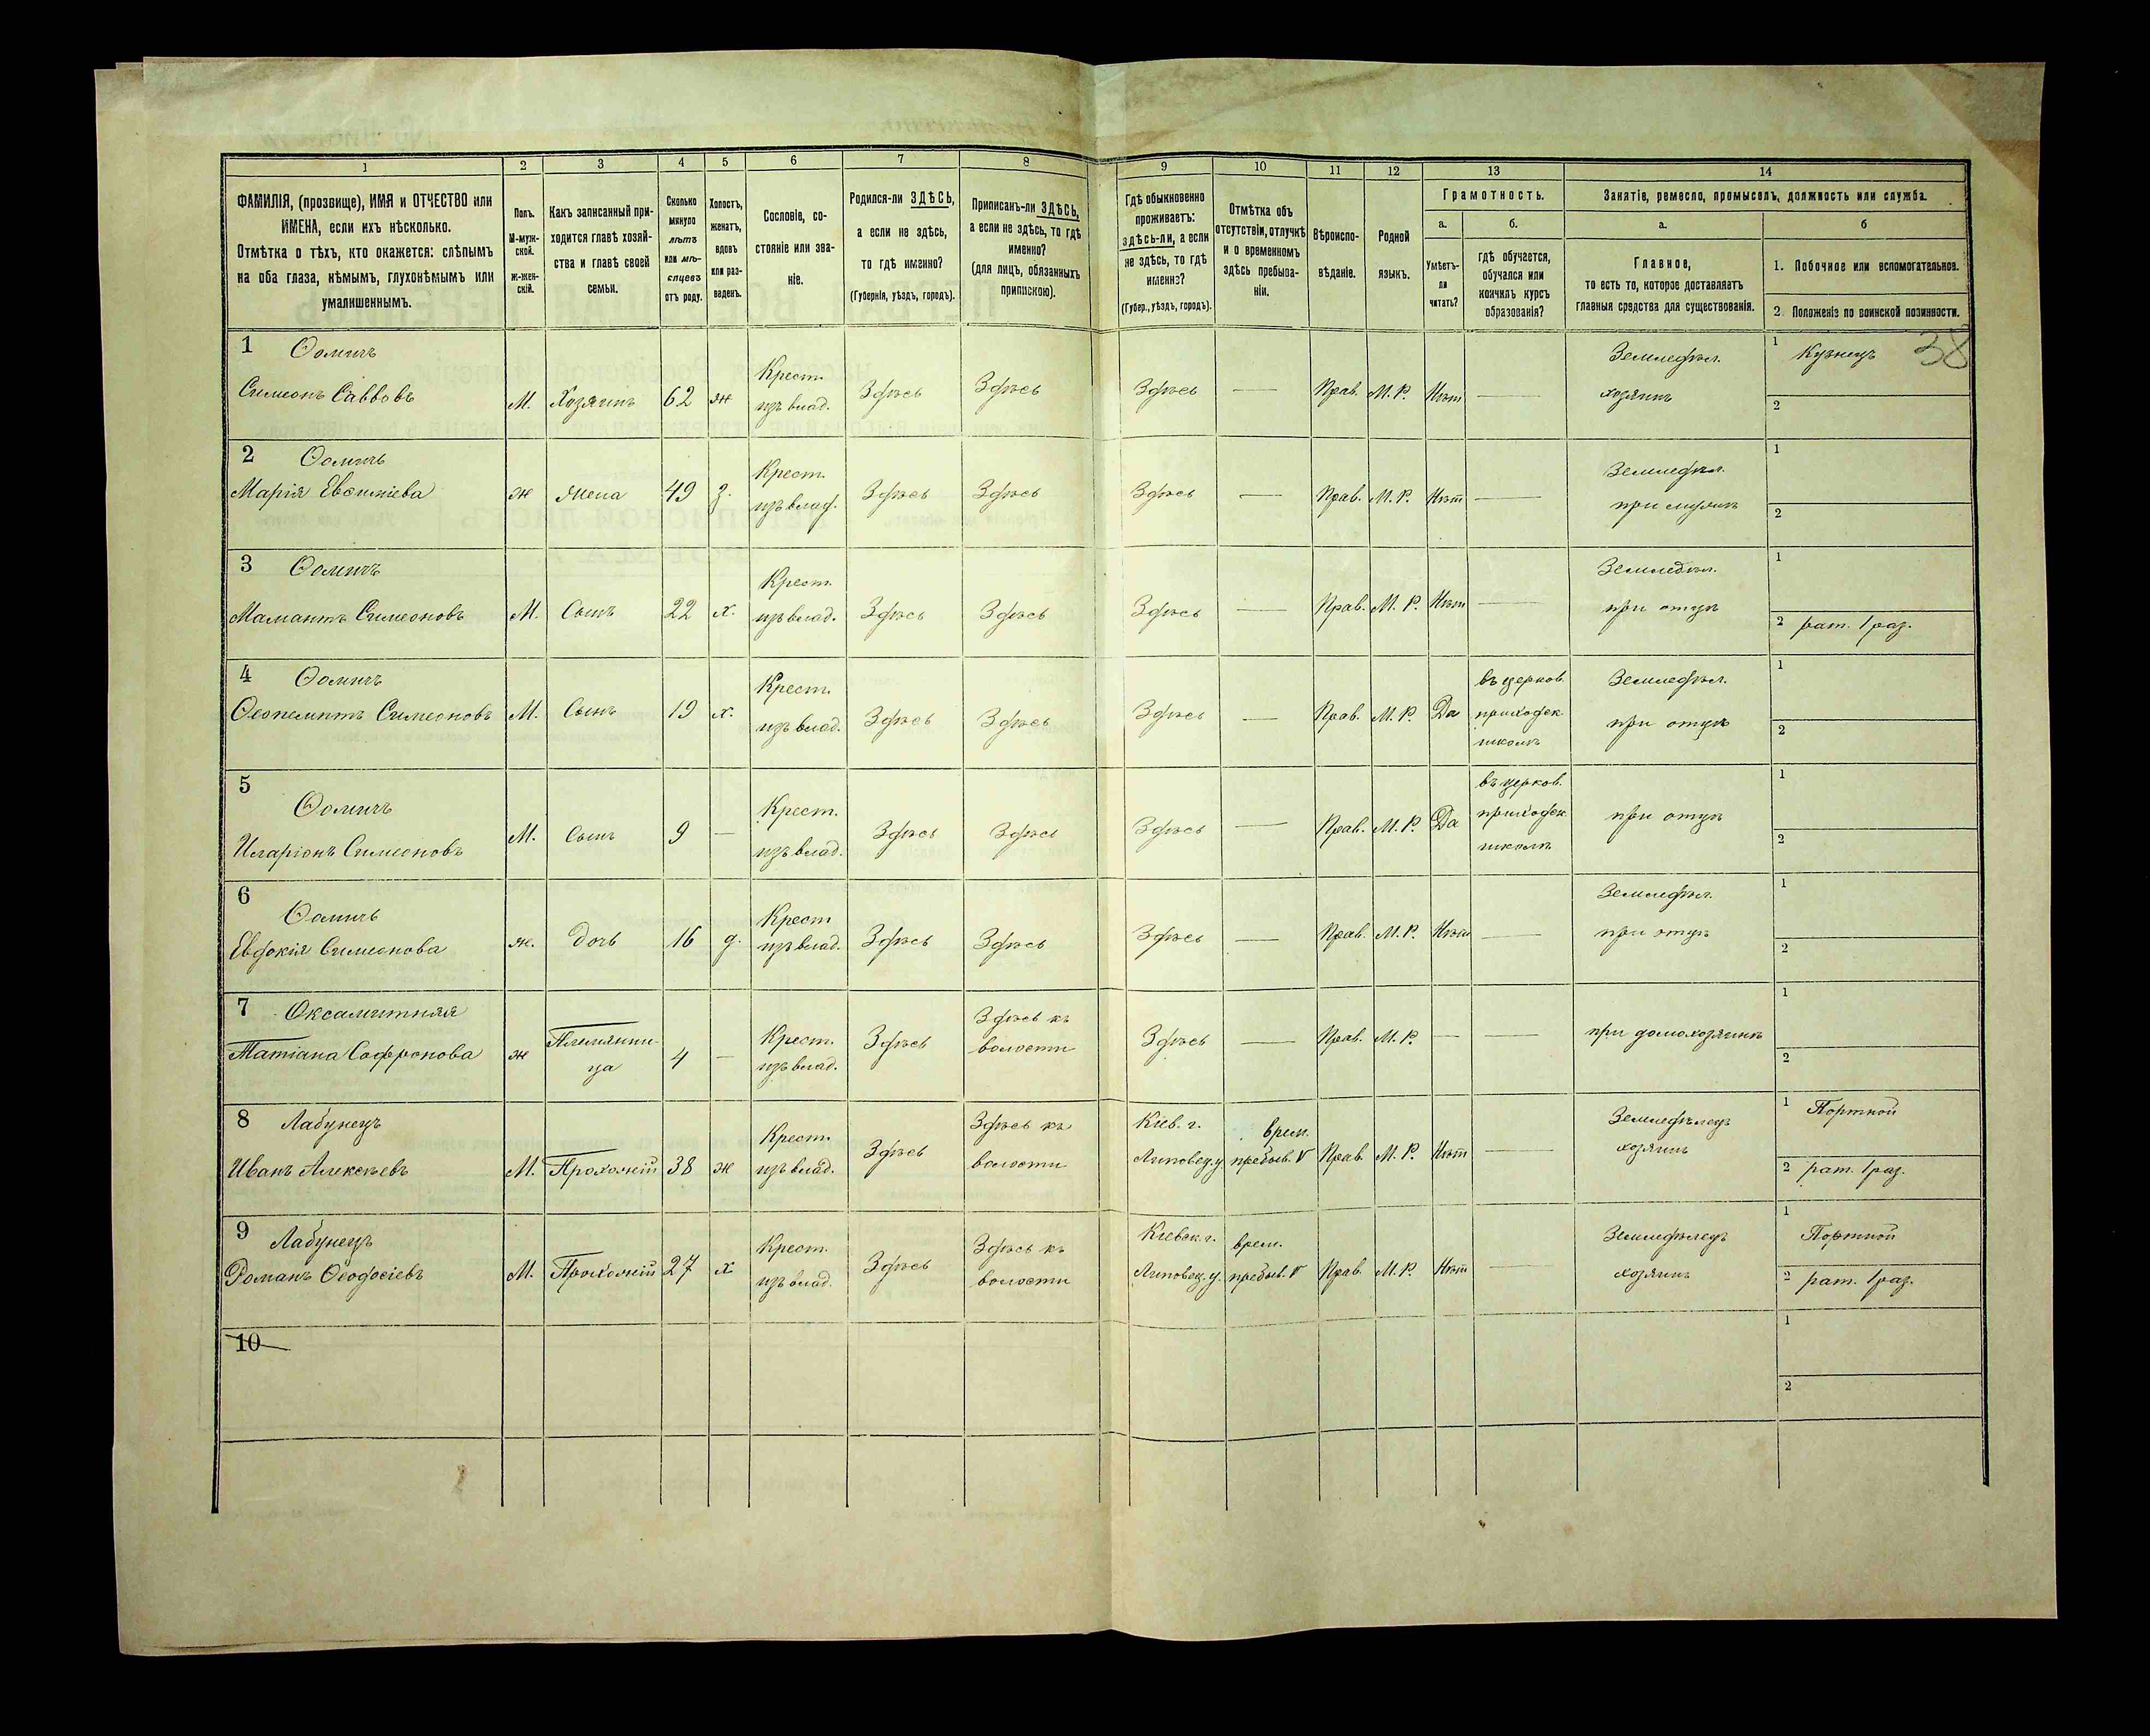 1 2 3 4 5 6 7 8 9 10 11 12 13 14
ФАМИЛІЯ, (прозвище), ИМЯ и ОТЧЕСТВО или
ИМЕНА, если ихъ нѣсколько.
Отмѣтка о тѣхъ, кто окажется: слѣпымъ
на оба глаза, нѣмымъ, глухонѣмымъ или
умалишеннымъ.
Полъ.
М-муж-
ской.
ж-жен-
скій.
Какъ записанный при-
ходится главѣ хозяй-
ства и главѣ своей
семьи.
Сколько
минуло
лѣтъ
или мѣ-
сяцевъ
отъ роду.
Холостъ,
женатъ,
вдовъ
или раз-
веденъ.
Сословіе, со-
стояніе или зва-
ніе.
Родился-ли ЗДѢСЬ,
а если не здѣсь,
то гдѣ именно?
(Губернія, уѣздъ, городъ).
Приписанъ-ли ЗДѢСЬ,
а если не здѣсь, то гдѣ
именно?
(для лицъ, обязанныхъ
припискою).
Гдѣ обыкновенно
проживаетъ:
здѣсь-ли, а если
не здѣсь, то гдѣ
именно?
(Губер., уѣздъ, городъ).
Отмѣтка объ
отсутствіи, отлучкѣ
и о временномъ
здѣсь пребыва-
ніи.
Вѣроиспо-
вѣданіе.
Родной
языкъ.
Грамотность.
а.
Умѣетъ-
ли
читать?
б.
гдѣ обучается,
обучался или
кончилъ курсъ
образованія?
Занятіе, ремесло, промыселъ, должность или служба.
а.
Главное,
то есть то, которое доставляетъ
главныя средства для существованія.
б
1. Побочное или вспомогательное.
2 Положеніе по воинской повинности.
38
1 Ѳомичъ Крест. Земледѣл. 1 Кузнецъ
Симеонъ Саввовъ М. Хозяинъ 62 ж изъ влад. Здѣсь Здѣсь Здѣсь — Прав. М. Р. Нѣт — хозяинъ 2
2 Ѳомичъ Крест. Земледѣл. 1
Марія Евѳиміева ж Жена 49 з. изъ влад. Здѣсь Здѣсь Здѣсь — Прав. М. Р. Нѣт — при мужѣ 2
3 Ѳомичъ Крест. Земледѣл. 1
Мамантъ Симеоновъ М. Сынъ 22 х. изъ влад. Здѣсь Здѣсь Здѣсь — Прав. М. Р. Нѣт — при отцѣ 2 рат. 1 раз.
4 Ѳомичъ Крест. въ церков. Земледѣл. 1
Ѳеопемптъ Симеоновъ М. Сынъ 19 х. изъ влад. Здѣсь Здѣсь Здѣсь — Прав. М. Р. Да приходск. при отцѣ 2
школѣ
5 Ѳомичъ Крест. въ церков. 1
Иларіонъ Симеоновъ М. Сынъ 9 — изъ влад. Здѣсь Здѣсь Здѣсь — Прав. М. Р. Да приходск. при отцѣ 2
школѣ
6 Ѳомичъ Крест Земледѣл. 1
Евдокія Симеонова ж. Дочь 16 д. изъ влад. Здѣсь Здѣсь Здѣсь — Прав. М. Р. Нѣт — при отцѣ 2
7 Оксамитняя Племянни- Крест. Здѣсь къ 1
Татіана Софронова ж ца 4 — изъ влад. Здѣсь волости Здѣсь — Прав. М. Р. — — при домохозяинѣ 2
8 Лабунецъ Крест. Здѣсь къ Кіев. г. врем. Земледѣлецъ 1 Портной
Иванъ Алексѣевъ М. Прохожій 38 ж изъ влад. Здѣсь волости Липовец. у. пребыв. V Прав. М. Р. Нѣт — хозяинъ 2 рат. 1 раз.
9 Лабунецъ Крест. Здѣсь къ Кіевск. г. врем. Земледѣлецъ 1 Портной
Романъ Ѳеодосіевъ М. Прохожій 27 х изъ влад. Здѣсь волости Липовец. у. пребыв. V Прав. М. Р. Нѣт — хозяинъ 2 рат. 1 раз.
10 1
2